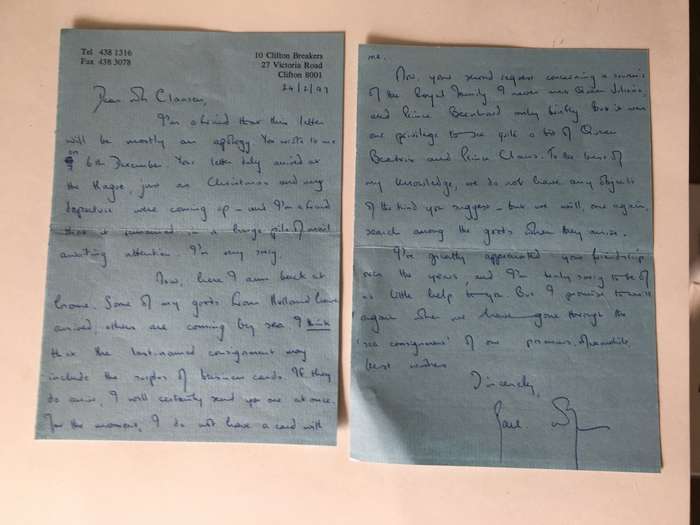 Tel 438 1316
Fax 438 3078
10 Clifton Breakers
27 Victoria Road
Clifton 8001
24/2/97
Dear Mr Clausen,
I'm afraid that this letter
will be mostly an apology. You wrote to me
on 6th December. Your letter duly arrived at
the Hague, just as Christmas and my
departure were coming up - and I'm afraid
that it remained in a large pile of mail
awaiting attention. I'm very sorry.
Now, here I am back at
home. Some of my goods from Holland have
arrived, others are coming by sea. I think
that the last-named consignment may
include the surplus of business cards. If they
do arrive, I will certainly send you one at once.
For the moment, I do not have a card with
me.
Now, your second request concerning a souvenir
of the Royal Family. I never met Queen Juliana
and Prince Bernhard only briefly. But it was
our privilege to see quite a bit of Queen
Beatrix and Prince Claus. To the best of
my knowledge, we do not have any objects
of the kind you suggest - but we will, once again,
search among the goods when they arrive.
I've greatly appreciated your friendship
over the years, and I'm truly sorry to be of
so little help to you. But I promise to write
again when we have gone through the
'sea consignment' of our possessions. Meanwhile,
best wishes
Sincerely,